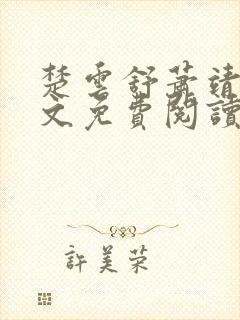 楚雲舒蕭靖
文免費閱讀
許美荣